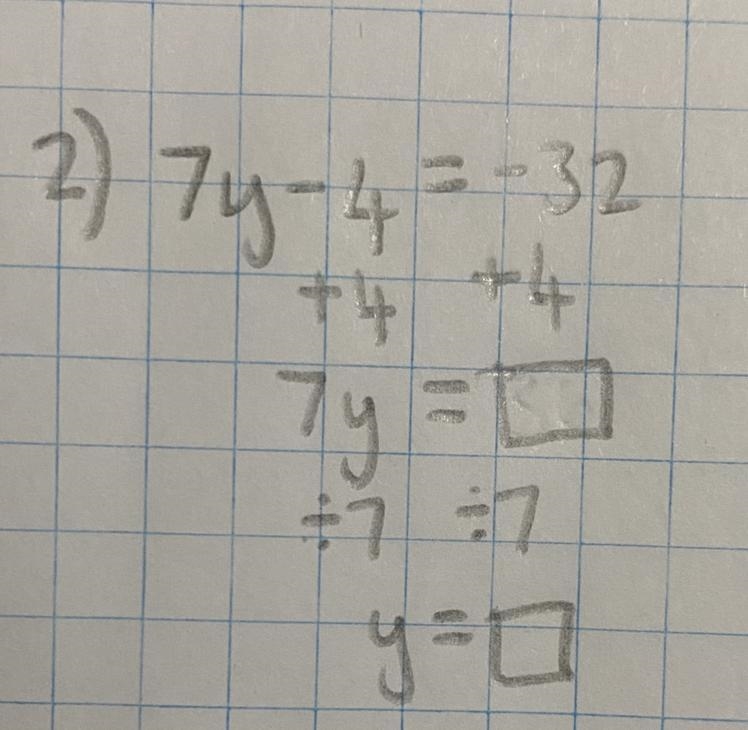 2) 7y - 4 = -32
+4 +4
7y = □
÷7 ÷7
y = □